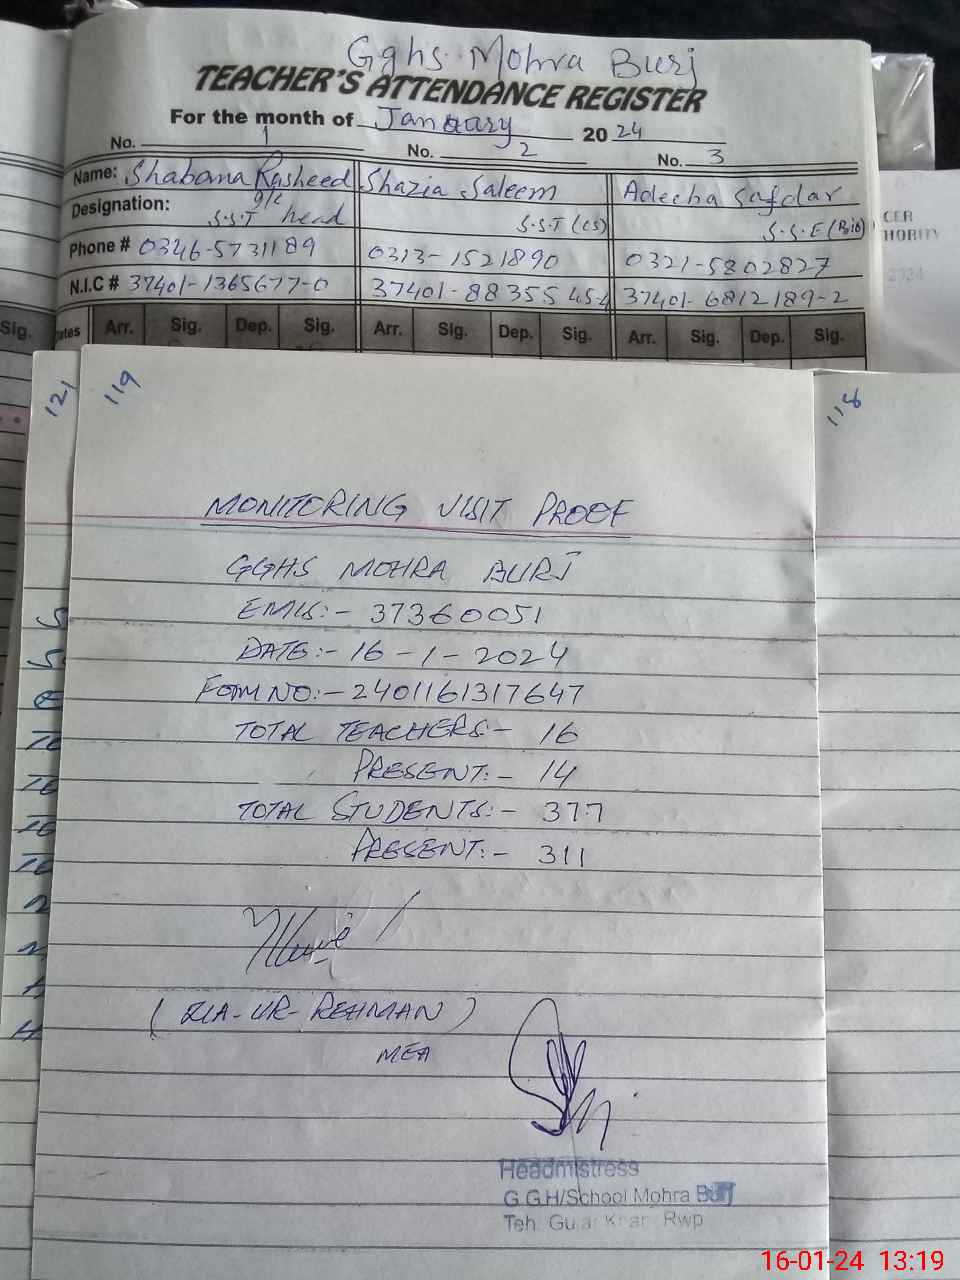 Gghs. Mohra Burj
TEACHER'S ATTENDANCE REGISTER
For the month of January 2024
No. 1 No. 2 No. 3
Name: Shabana Rasheed Shazia Saleem Adeeha Safdar
Designation: S.S.T I/C head S.S.T (CS) S.S.E (Bio)
Phone # 0346-5731189 0313-1521890 0321-5802827
N.I.C # 37401-1365677-0 37401-8835545-4 37401-6812189-2
Sig. ates Arr. Sig. Dep. Sig. Arr. Sig. Dep. Sig. Arr. Sig. Dep. Sig.
CER
HORITY
121 119 118
MONITORING VISIT PROOF
GGHS MOHRA BURJ
EMIS:- 37360051
DATE:- 16-1-2024
FORM NO:- 2401161317647
TOTAL TEACHERS:- 16
PRESENT:- 14
TOTAL STUDENTS:- 377
PRESENT:- 311
(ZIA-UR-REHMAN)
MEA
Headmistress
G.G.H/School Mohra Burj
Teh. Gujar Khan Rwp
16-01-24 13:19